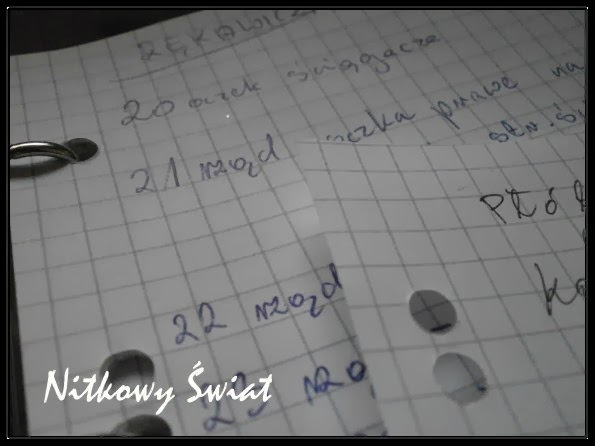 RĘKAWICZ
20 oczek ściągacze
21 rząd prawe na
PŁÓ
22 rząd
23 rzą
Nitkowy Świat